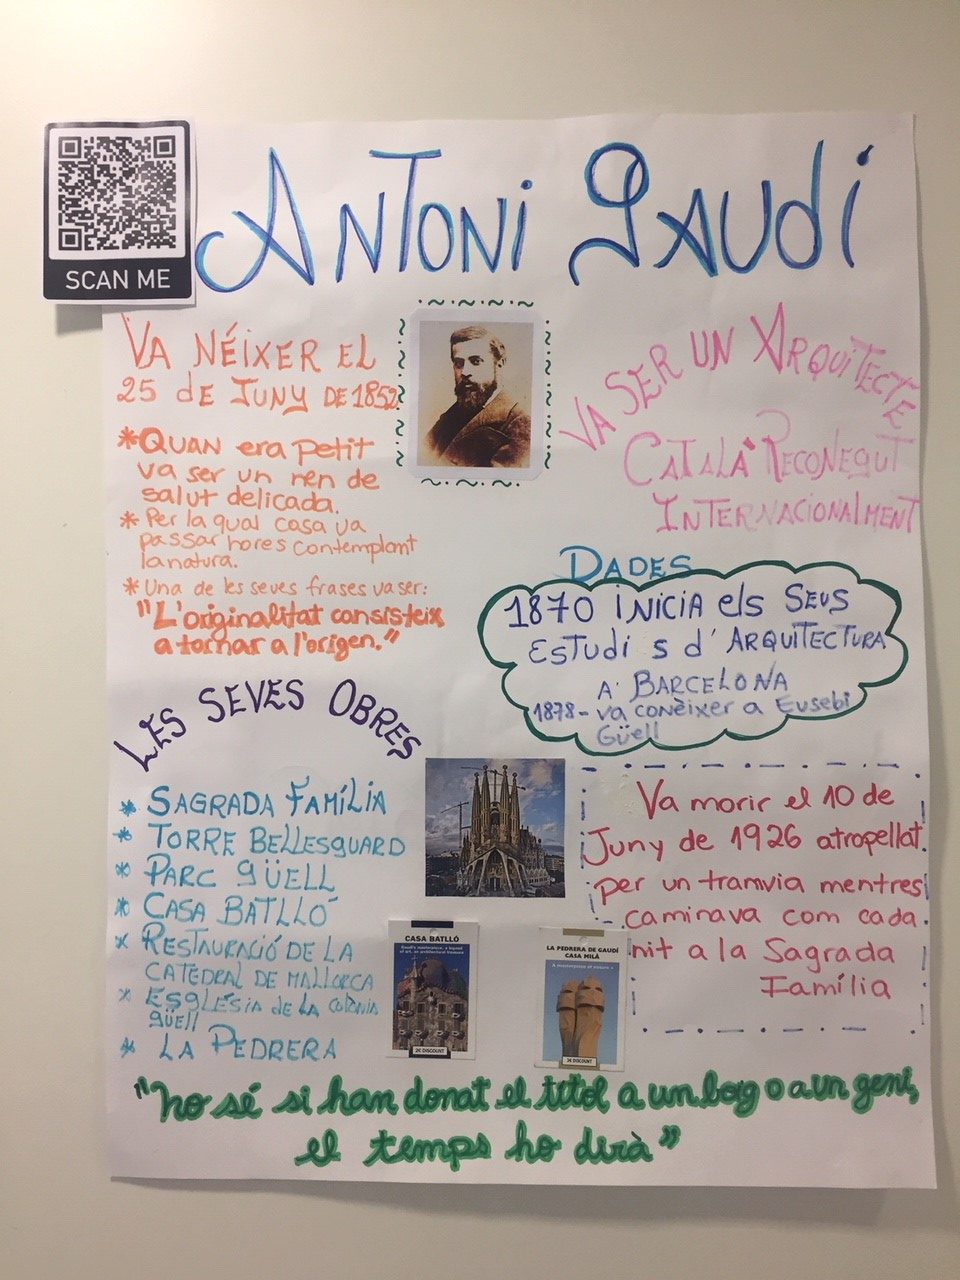 SCAN ME
ANTONI GAUDÍ
VA NÉIXER EL
25 DE JUNY DE 1852
*QUAN era petit
va ser un nen de
salut delicada.
* Per la qual casa va
passar hores contemplant
la natura.
* Una de les seves frases va ser:
"L'originalitat consisteix
a tornar a l'origen."
VA SER UN ARQUITECTE
CATALÀ RECONEGUT
INTERNACIONALMENT
DADES
1870 INICIA els SEUS
ESTUDIS d'ARQUITECTURA
A BARCELONA
1878 - va conèixer a Eusebi
Güell
LES SEVES OBRES
* SAGRADA FAMÍLIA
* TORRE BELLESGUARD
* PARC GÜELL
* CASA BATLLÓ
* RESTAURACIÓ DE LA
CATEDRAL DE MALLORCA
* ESGLÉSIA DE LA COLÒNIA
GÜELL
* LA PEDRERA
Va morir el 10 de
Juny de 1926 atropellat
per un tramvia mentres
caminava com cada
nit a la Sagrada
Família
CASA BATLLÓ
Gaudí's masterpiece, a legend
of art, an architectural treasure
2€ DISCOUNT
LA PEDRERA DE GAUDÍ
CASA MILÀ
A masterpiece of
2€ DISCOUNT
"No sé si han donat el títol a un boig o a un geni,
el temps ho dirà"